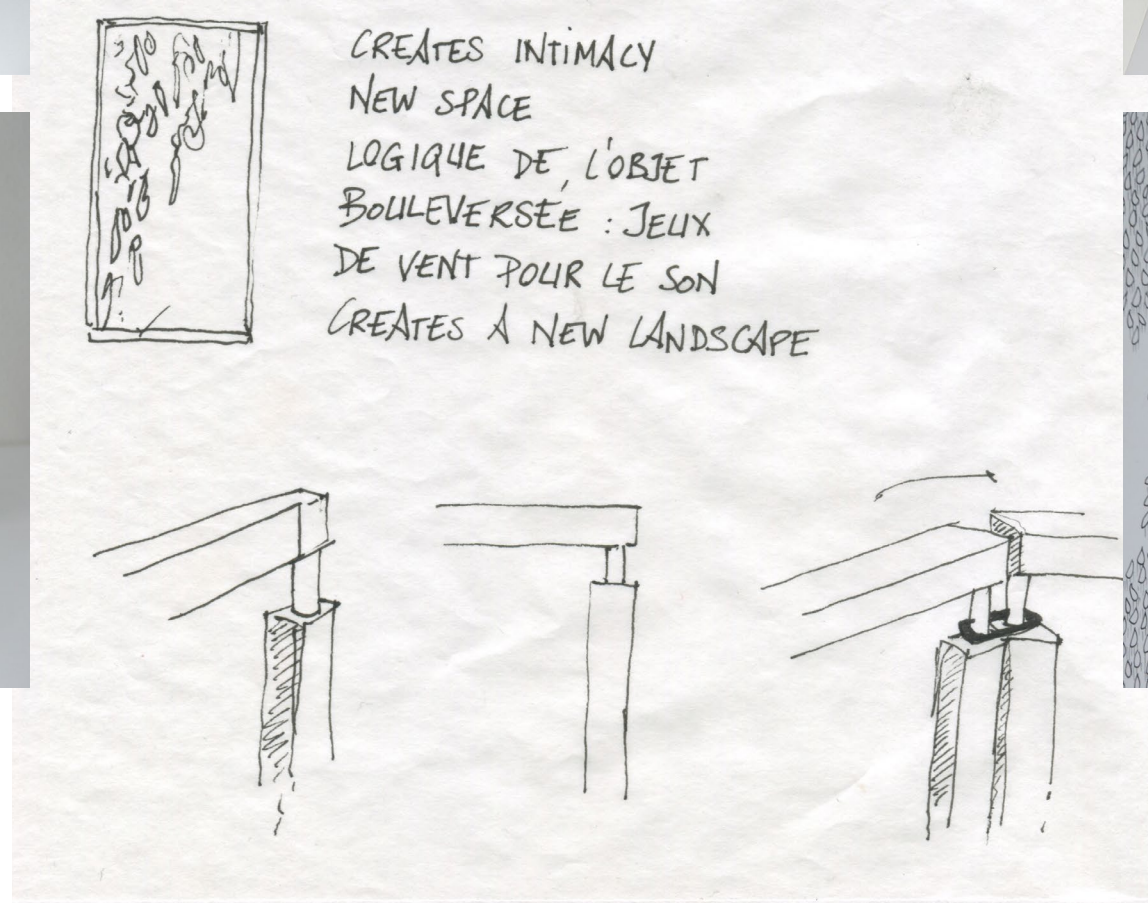 CREATES INTIMACY
NEW SPACE
LOGIQUE DE L'OBJET
BOULEVERSÉE : JEUX
DE VENT POUR LE SON
CREATES A NEW LANDSCAPE